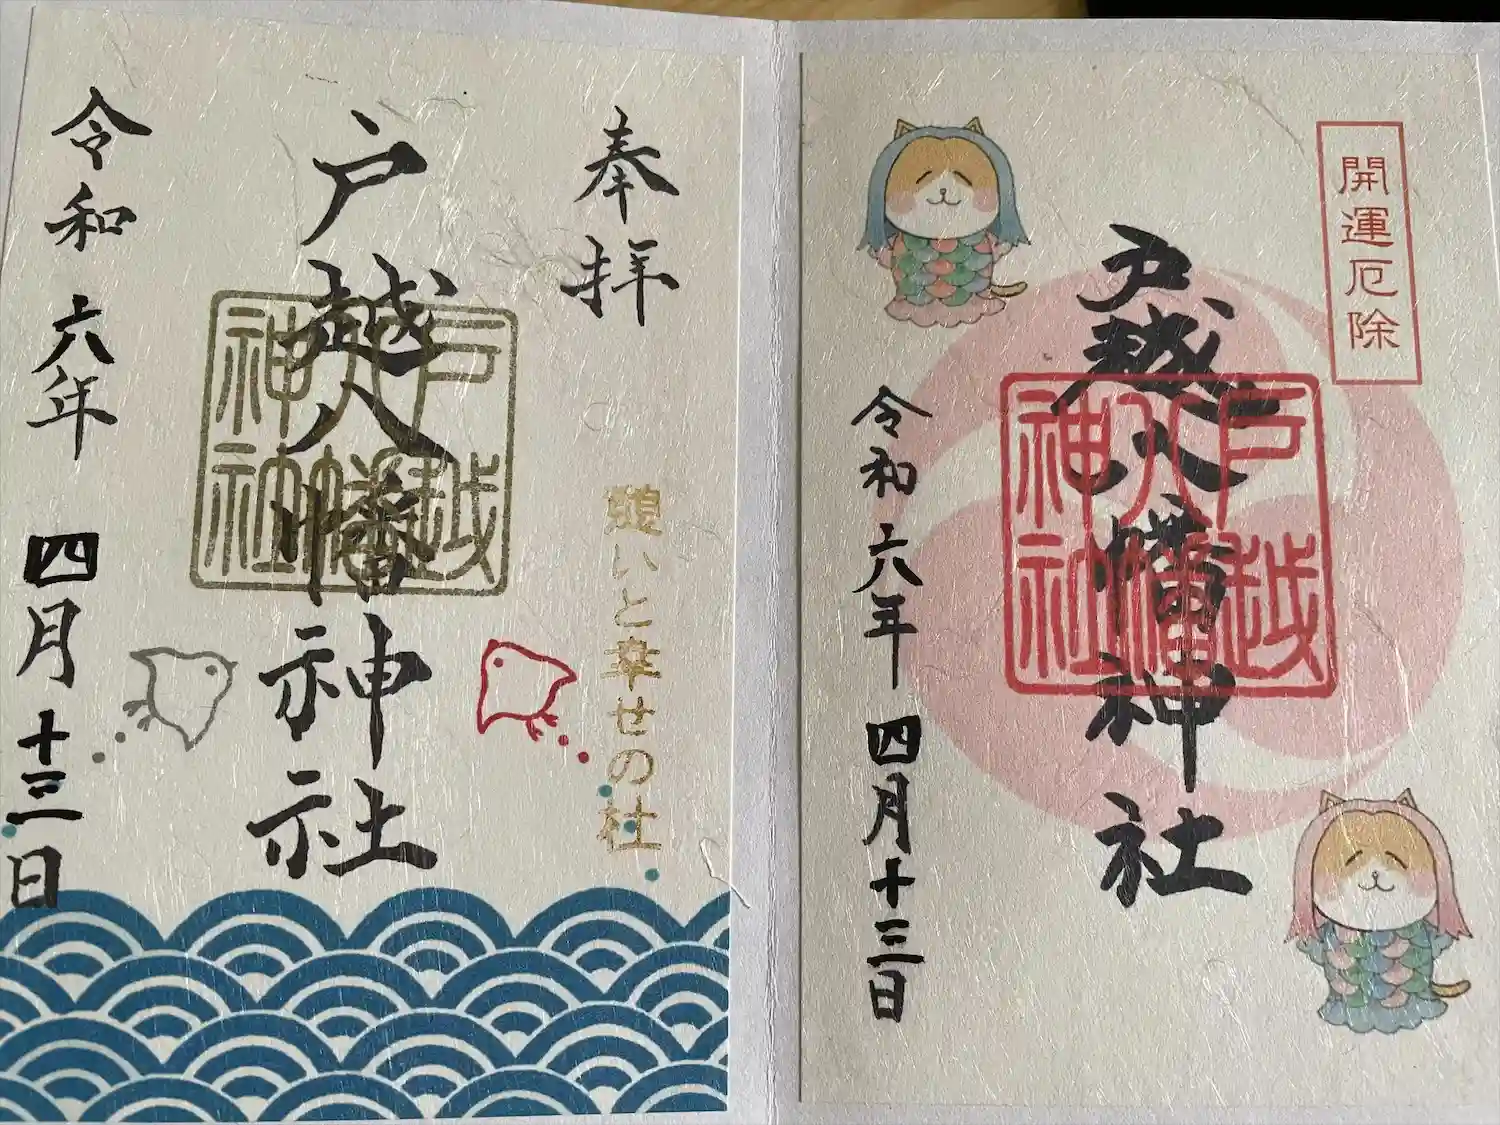 奉拝
願いと幸せの社
戸越八幡神社
戸越
八幡
神社
令和六年 四月十三日
開運厄除
戸越八幡神社
戸越
八幡
神社
令和六年四月十三日